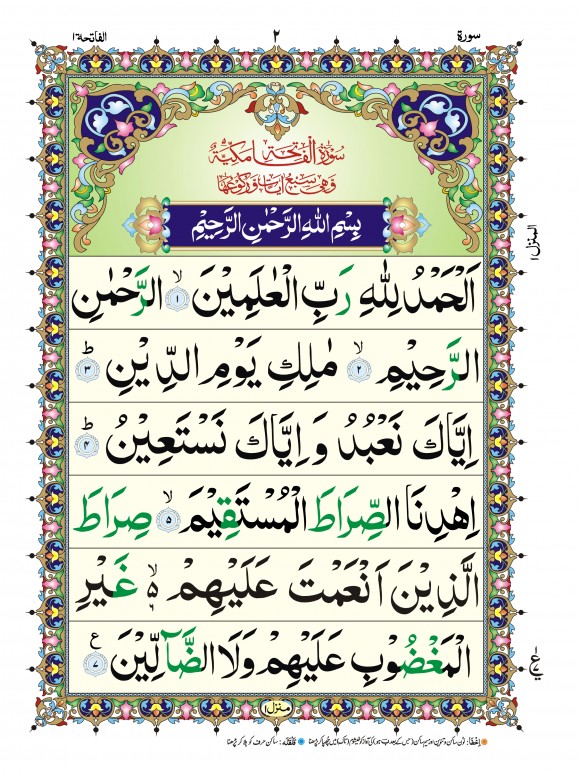 سورة
٢
الفاتحة ١
سُوْرَةُ الْفَاتِحَةِ مَكِّيَّةٌ
وَهِيَ سَبْعُ اٰيَاتٍ وَرُكُوْعُهَا
بِسْمِ اللهِ الرَّحْمٰنِ الرَّحِيْمِ
اَلْحَمْدُ لِلّٰهِ رَبِّ الْعٰلَمِيْنَ ۙ﴿١﴾ الرَّحْمٰنِ
الرَّحِيْمِ ۙ﴿٢﴾ مٰلِكِ يَوْمِ الدِّيْنِ ؕ﴿٣﴾
اِيَّاكَ نَعْبُدُ وَ اِيَّاكَ نَسْتَعِيْنُ ؕ﴿٤﴾
اِهْدِنَا الصِّرَاطَ الْمُسْتَقِيْمَ ۙ﴿٥﴾ صِرَاطَ
الَّذِيْنَ اَنْعَمْتَ عَلَيْهِمْ ۙ٦ غَيْرِ
الْمَغْضُوْبِ عَلَيْهِمْ وَلَا الضَّآلِّيْنَ ﴿٧﴾ ع
المنزل ١
ع
منزل ١